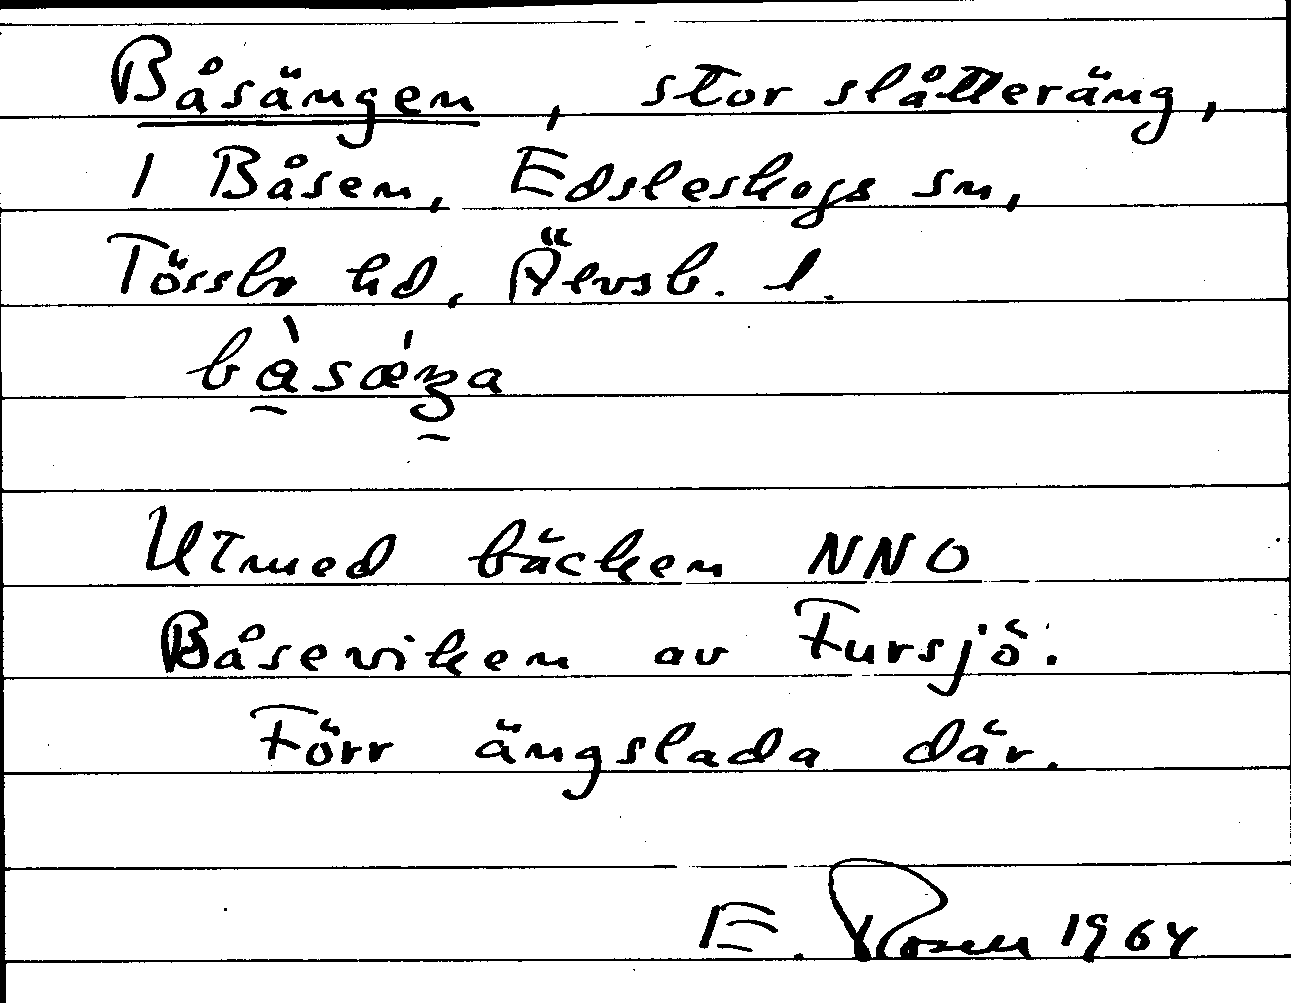 Båsängen, stor slåtteräng,
1 Båsen, Edsleskogs sn,
Tössbo hd, Älvsb. l.
Utmed bäcken NNO
Båseviken av Fursjö.
Förr ängslada där.
E. Rosen 1964